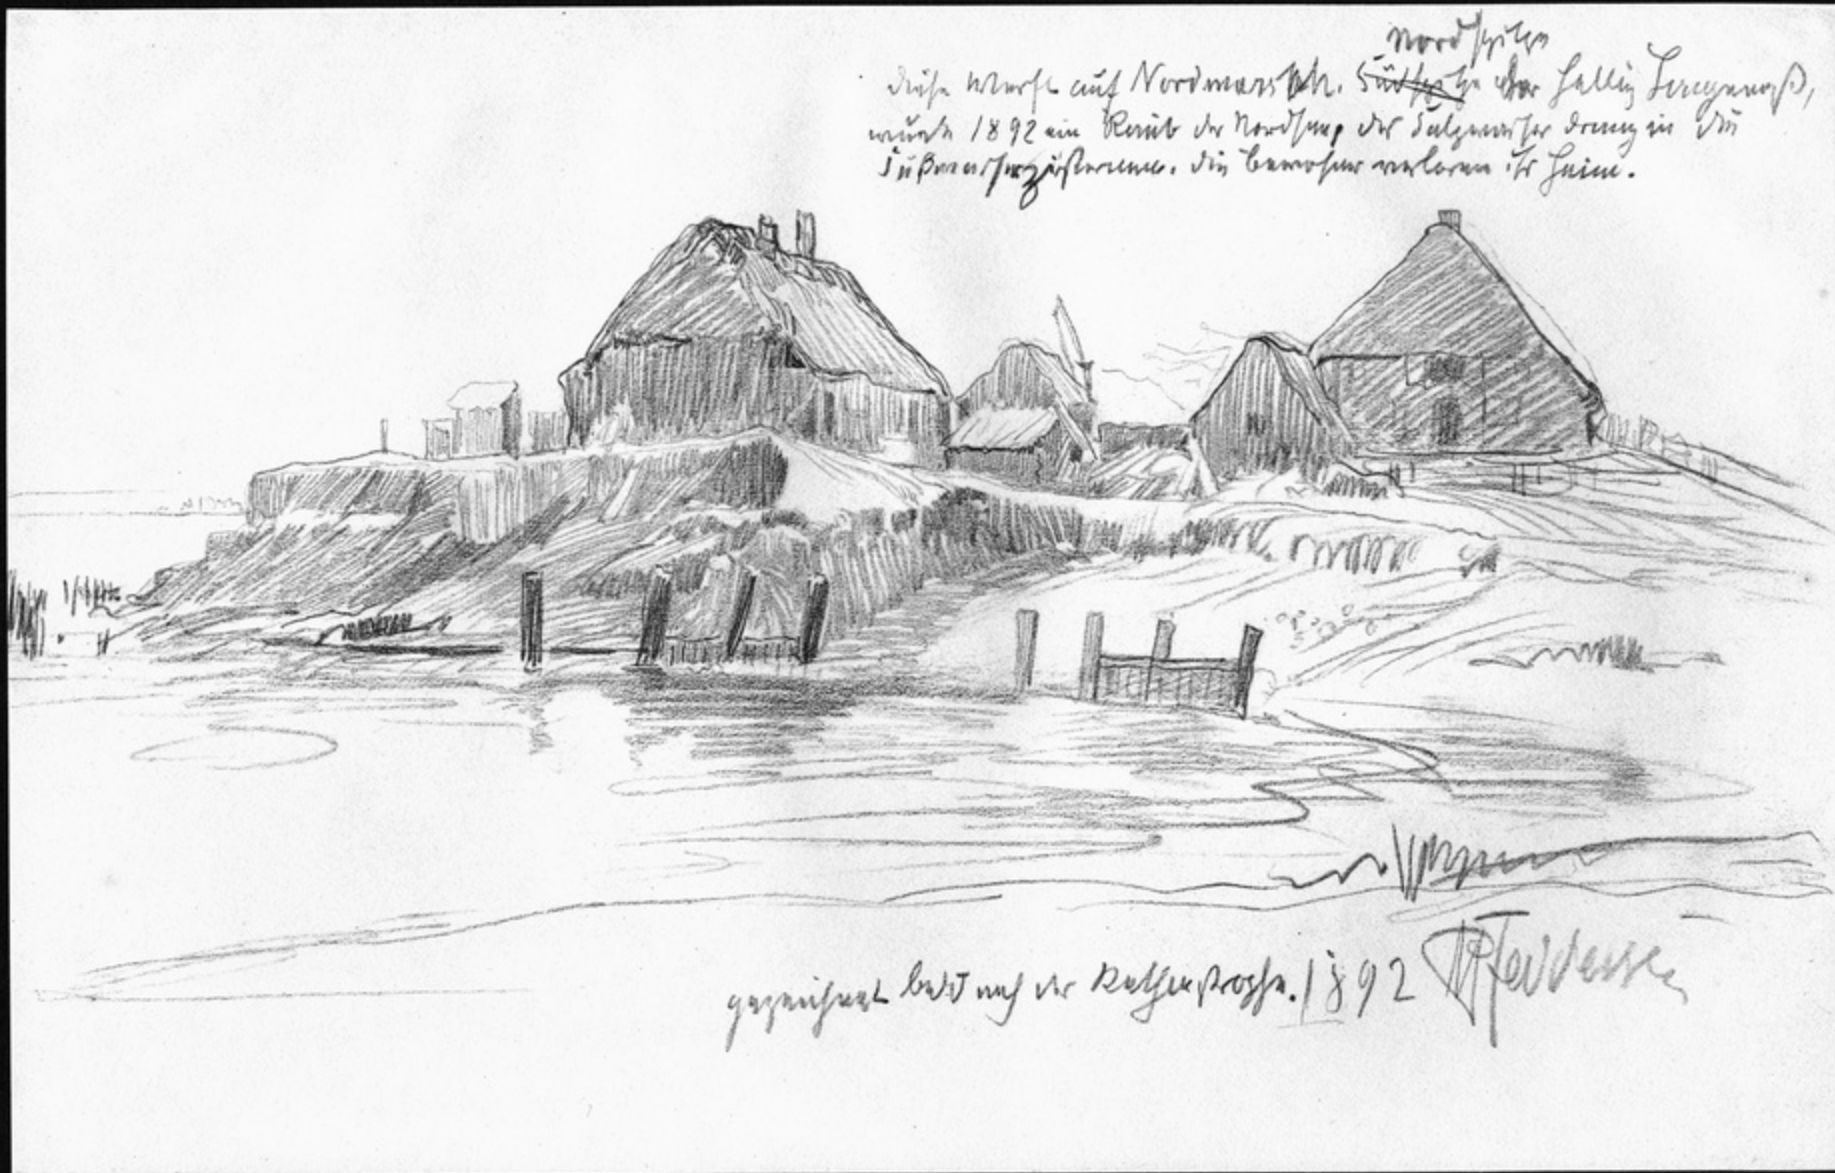 Nordspitze
diese Werft auf Nordmarsch. Südspitze der Hallig Langeneß,
wurde 1892 ein Raub der Nordsee, das Salzwasser drang in die
Süßwasserzisternen. die Bewohner verloren ihr Heim.
gezeichnet bald nach der Kathastrophe. 1892 HPFeddersen